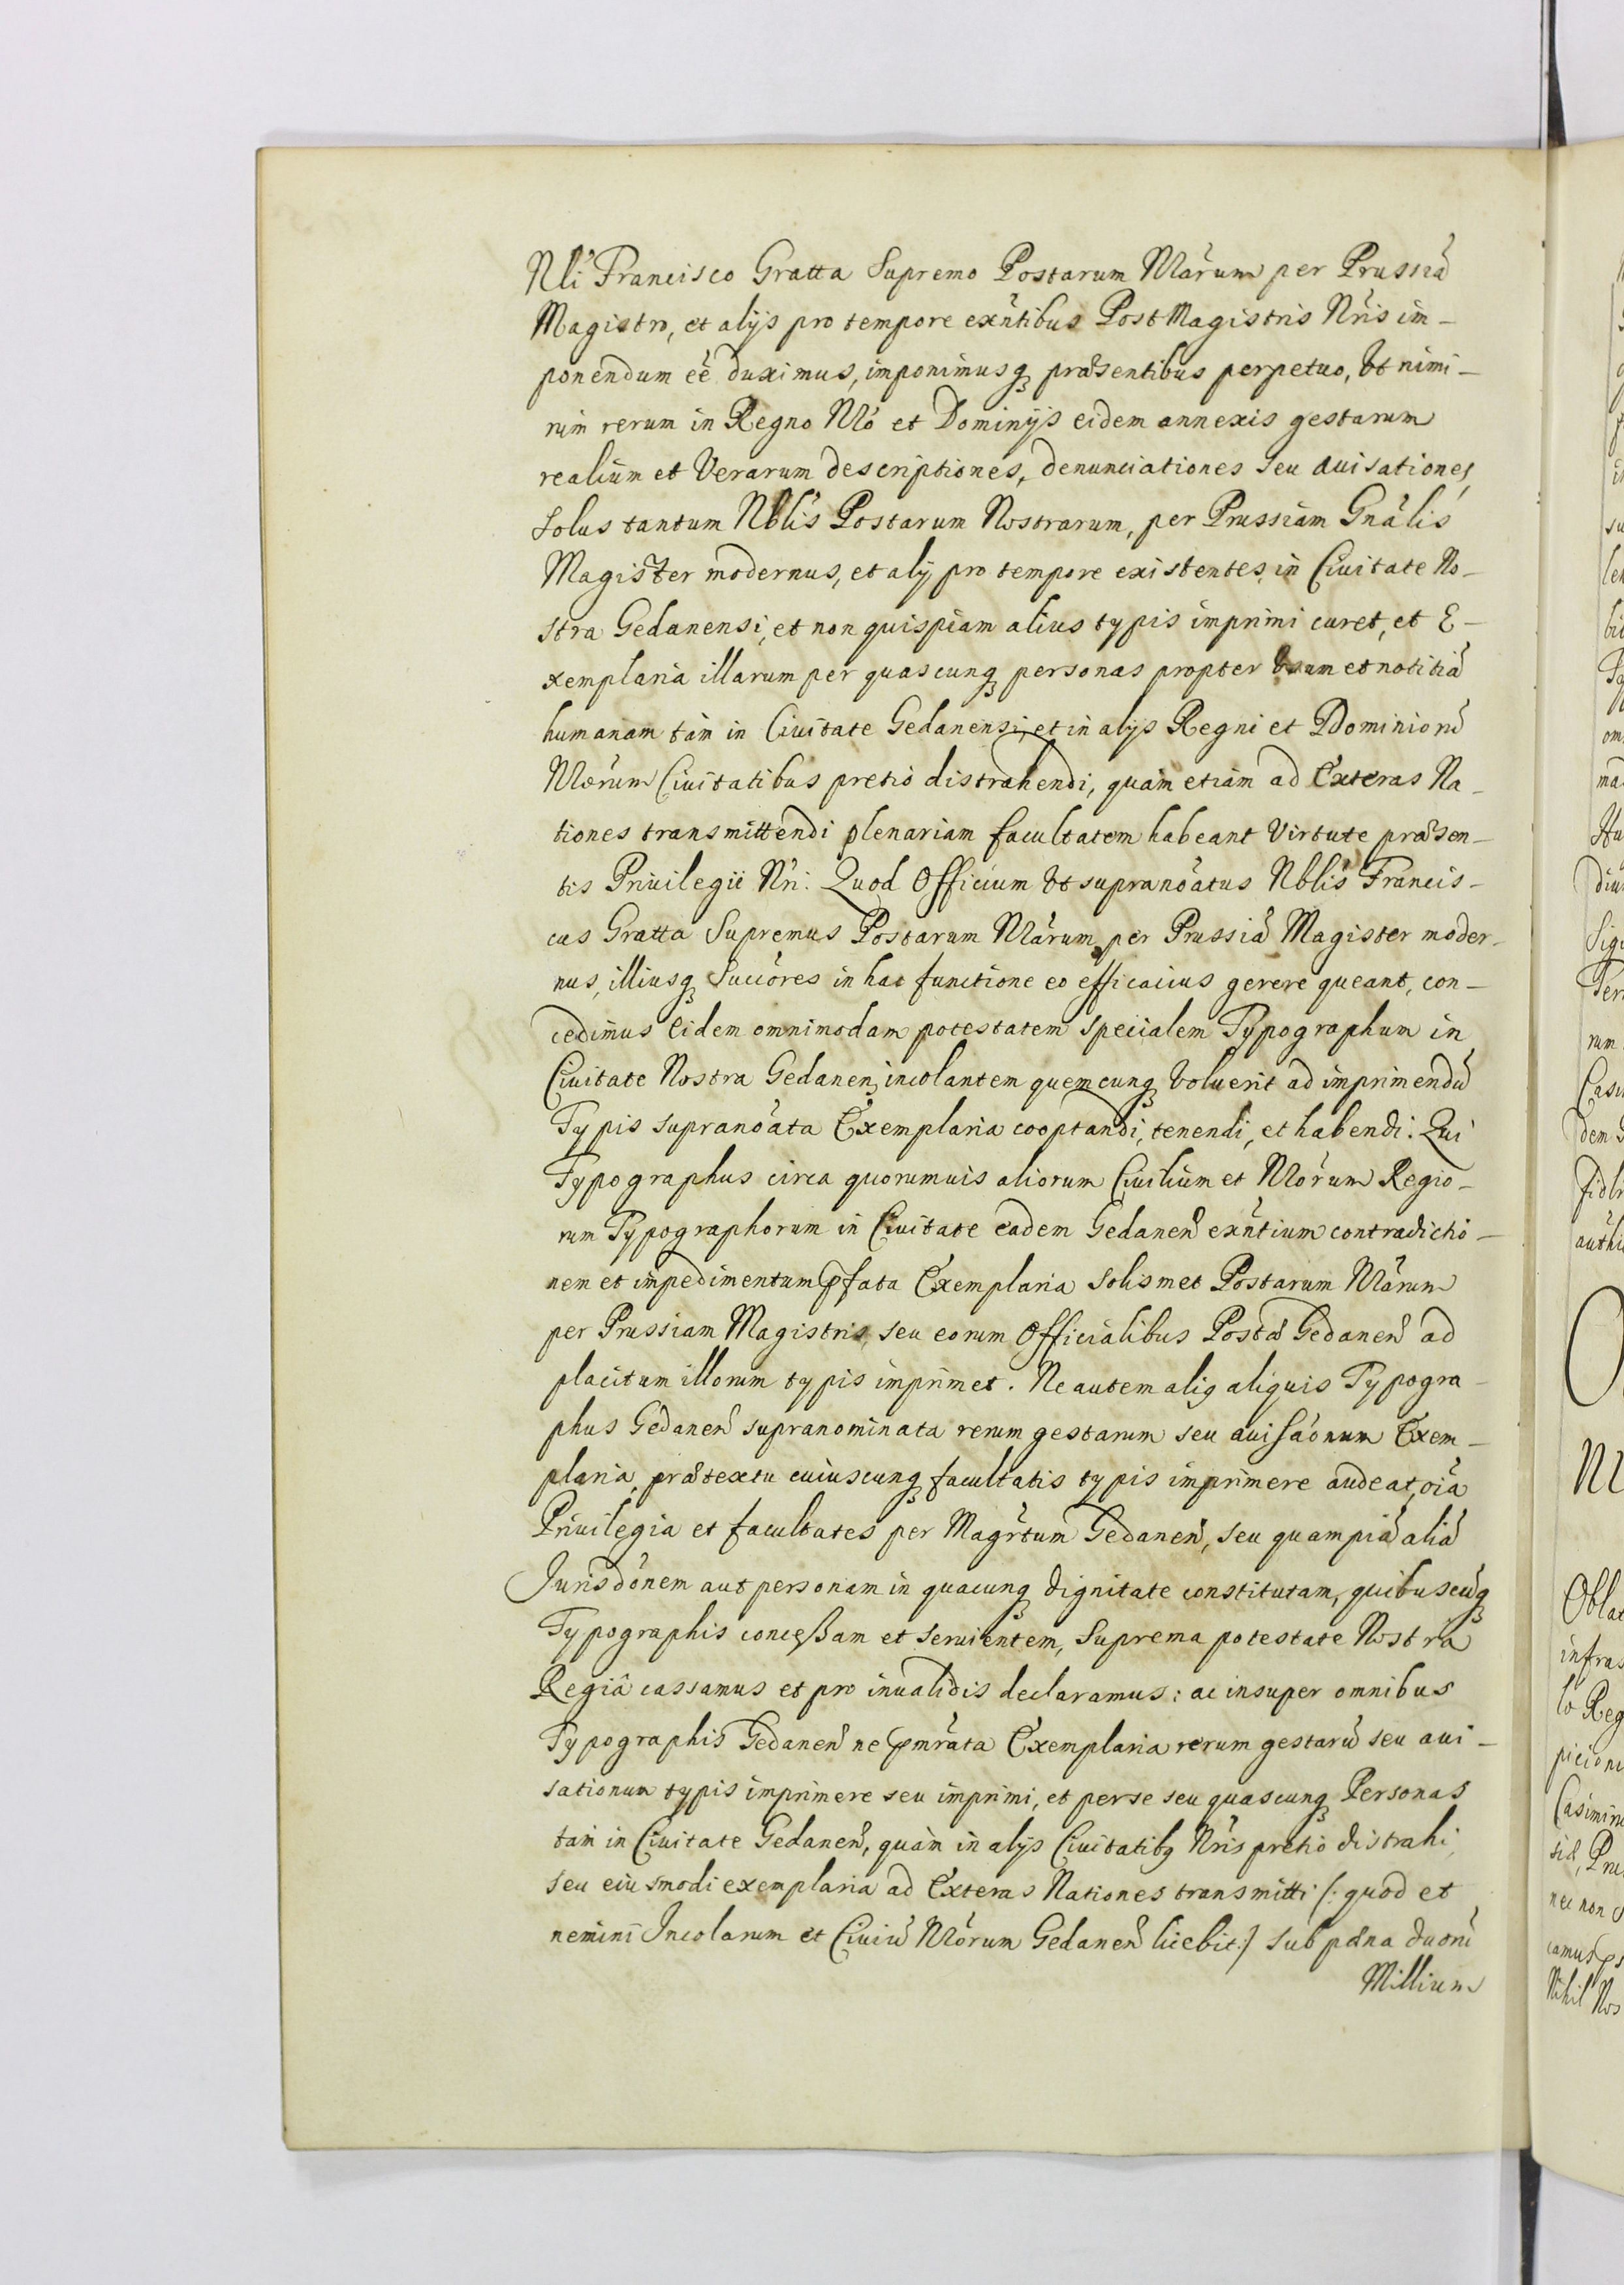 Nli Francisco Gratta Supremo Postarum Nrarum per Prussiã
Magistro, et alijs pro tempore exñtibus PostMagistris Nris im-
ponendum eẽ duximus, imponimusq præsentibus perpetuo, Vt nimi-
rùm rerum in Regno Nro et Dominijs eidem annexis gestarum
realium et Verarum descriptiones, denunciationes seu auisationes,
Solus tantum Nblis Postarum Nostrarum, per Prussiam Gnãlis
Magister modernus, et alij pro tempore existentes, in Ciuitate No-
stra Gedanensi, et non quispiam alius typis imprimi curet, et E-
xemplaria illarum per quascunq personas propter Vsum et notitiã
humanam tàm in Ciuitate Gedanensi, et in alijs Regni et Dominiorũ
Nrorum Ciuitatibus pretio distrahendi, quàm etiàm ad Exteras Na-
tiones transmittendi plenariam facultatem habeant Virtute præsen-
tis Priuilegii Nri. Quod Officium Vt supranoãtus Nblis Francis-
cus Gratta Supremus Postarum Nrarum per Prussiã Magister moder-
nus, illiusq Succõres in hac functione eo efficacius gerere queant, con-
cedimus Eidem omnimodam potestatem specialem Typographum in
Ciuitate Nostra Gedanen, incolantem quemcunq Voluerit ad imprimendũ
Typis supranoãta Exemplaria cooptandi, tenendi, et habendi. Qui
Typographus circa quorumuis aliorum Ciuilium et Nrorum Regio-
rum Typographorum in Ciuitate eadem Gedanen exñtium contradictio-
nem et impedimentum pfata Exemplaria solismet Postarum Nrarum
per Prussiam Magistris, seu eorum Officialibus Postæ Gedanen ad
placitum illorum typis imprimet. Ne autem aliq aliquis Typogra-
phus Gedanen supranominata rerum gestarum seu auisaõnum Exem-
plaria, prætextu cuiuscunq facultatis typis imprimere audeat, oiã
Priuilegia et facultates per Magrtum Gedanen, seu quampiã aliã
Jurisdõnem aut personam in quacunq dignitate constitutam, quibuscũq
Typographis conceßam et seruientem, Suprema potestate Nostra
Regiâ cassamus et pro inualidis declaramus: ac insuper omnibus
Typographis Gedanen ne pmrãta Exemplaria rerum gestarũ seu aui-
sationum typis imprimere seu imprimi, et per se seu quascunq Personas
tàm in Ciuitate Gedanen, quàm in alijs Ciuitatibq Nris pretio distrahi,
seu eiusmodi exemplaria ad Exteras Nationes transmitti /: quod et
nemini Incolarum et Ciuiũ Nrorum Gedanen licebit:/ sub pæna duorũ
Millium